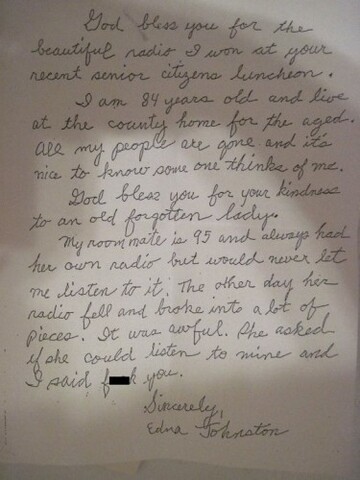 God bless you for the
beautiful radio I won at your
recent senior citizens luncheon.
I am 84 years old and live
at the county home for the aged.
All my people are gone and it's
nice to know some one thinks of me.
God bless you for your kindness
to an old forgotten lady.
My roommate is 95 and always had
her own radio but would never let
me listen to it. The other day her
radio fell and broke into a lot of
pieces. It was awful. She asked
if she could listen to mine and
I said f k you.
Sincerely,
Edna Johnston